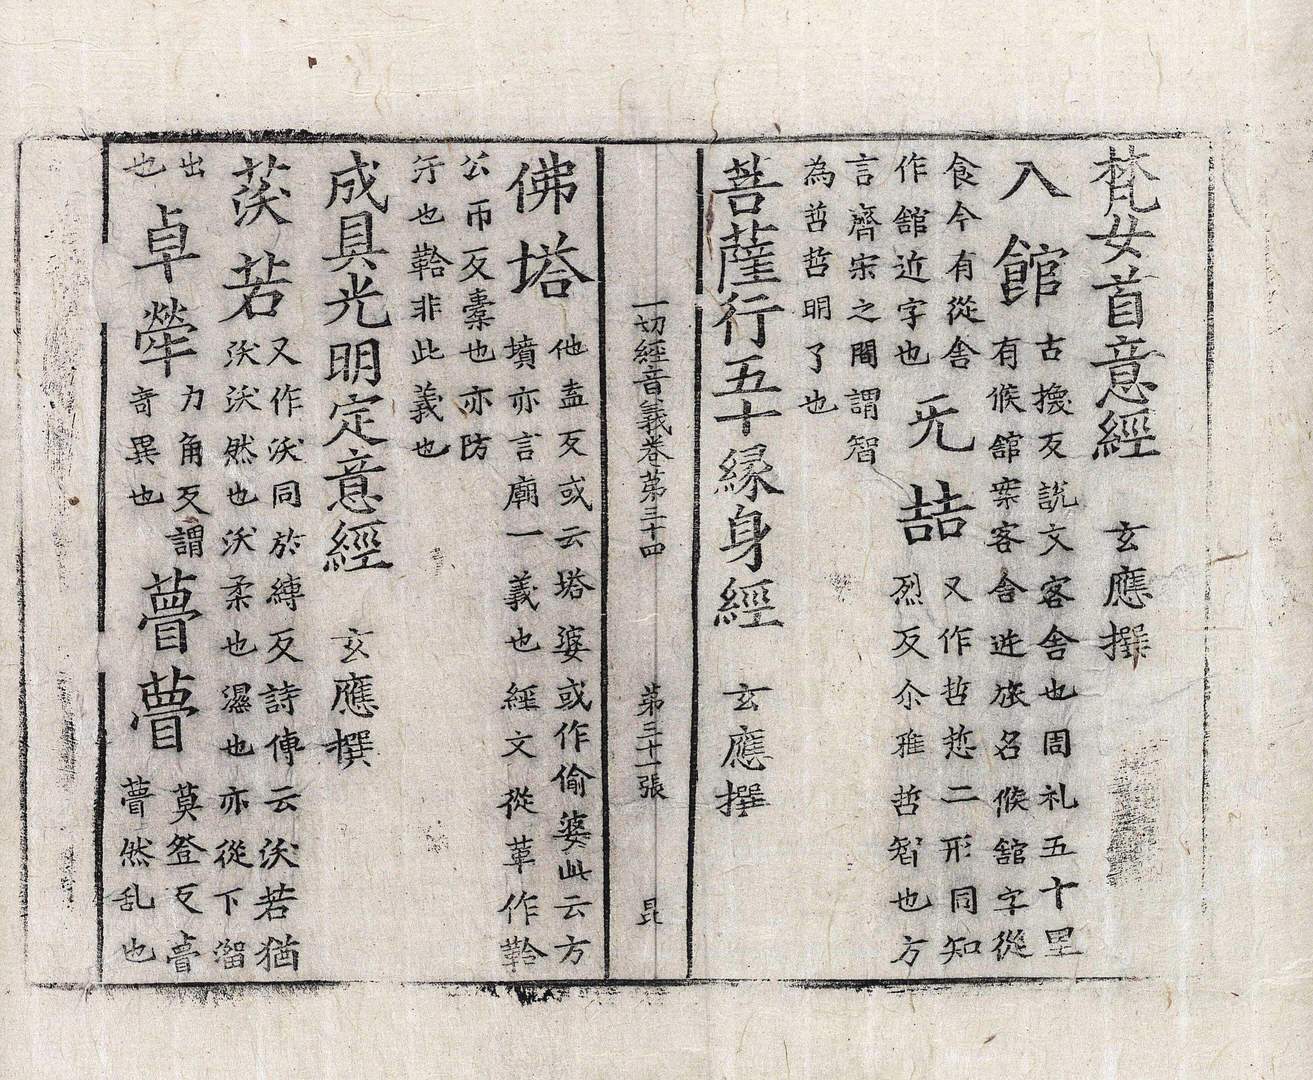 梵女首意經　玄應撰
入館　古換反說文客舍也周礼五十里
有候館案客舍逆旅名候館字從
食今有從舍
作舘近字也　旡喆　又作哲悊二形同知
烈反尒雅哲智也方
言齊宋之間謂智
為哲哲明了也
菩薩行五十緣身經　玄應撰
一切經音義卷第三十四　第三十一張　昆
佛塔　他盍反或云塔婆或作偷婆此云方
墳亦言廟一義也經文從革作鞈
公帀反橐也亦防
汗也鞈非此義也
成具光明定意經　玄應撰
茨若　又作沃同於縛反詩傳云沃若猶
沃沃然也沃柔也濕也亦從下溜
出
也　卓犖　力角反謂
奇異也　瞢瞢　莫登反瞢
瞢然乱也